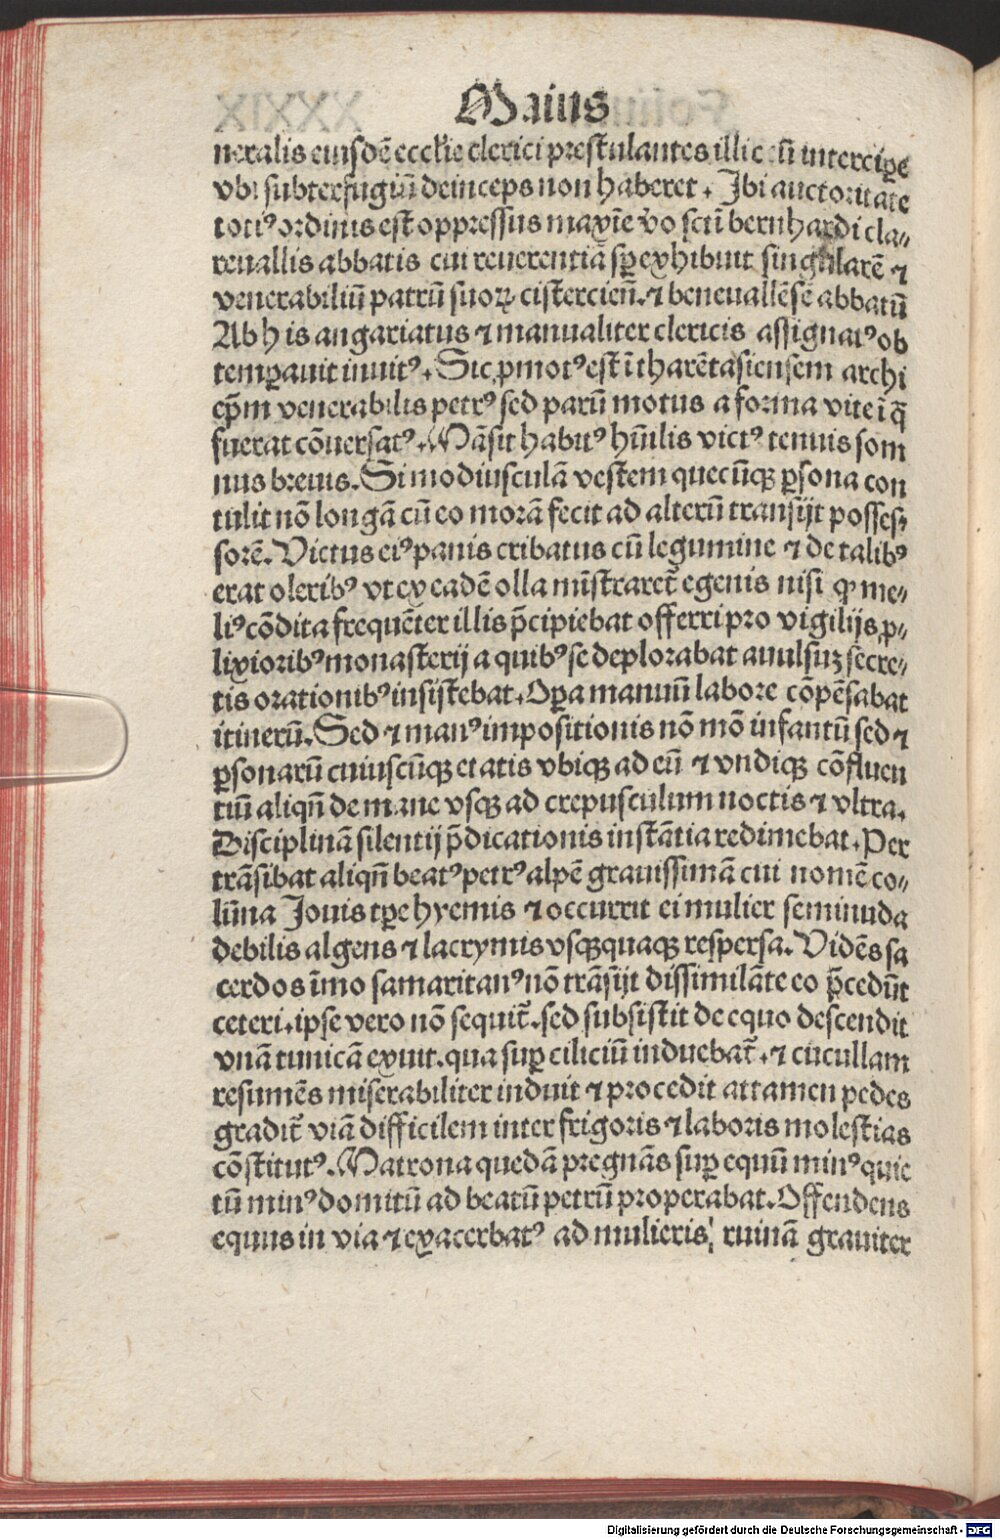 Maius
neralis eiusdē eccl'ie clerici prestulantes illic eū interciꝑe
vbi subterfugiū deinceps non haberet. Ibi auctoritate
totiꝰ ordinis est oppressus maxīe v̄o scti bernhardi cla-
reuallis abbatis cui reuerentiā sꝑ exhibuit singularē ⁊
venerabiliū patrū suoꝝ cistercien̄. ⁊ beneuallēsē abbatū
Ab his angariatus ⁊ manualiter clericis assignatꝰ ob
temꝑauit inuitꝰ. Sic ꝓmotꝰ est ī tharētasiensem archi
ep̄m venerabilis petrꝰ sed parū motus a forma vite ī q̄
fuerat cōuersatꝰ. Māsit habitꝰ hūilis victꝰ tenuis som
nus breuis. Si modiusculā vestem quecūqꝫ ꝑsona con
tulit nō longā cū eo morā fecit ad alterū transijt posses-
sorē. Victus eiꝰ panis cribatus cū legumine ⁊ de talibꝰ
erat oleribꝰ vt ex eadē olla mīstraret̄ egenis nisi ꝙ me-
liꝰ cōdita frequēter illis p̄cipiebat offerri pro vigilijs ꝓ-
lixioribꝰ monasterij a quibꝰ se deplorabat auulsuꝫ secre-
tis orationibꝰ insistebat. Oꝑa manuū labore cōpēsabat
itinerū. Sed ⁊ manꝰ impositionis nō mō infantū sed ⁊
ꝑsonarū cuiuscūqꝫ etatis vbiqꝫ ad eū ⁊ vndiqꝫ cōfluen
tiū aliqn̄ de mane vsqꝫ ad crepusculum noctis ⁊ vltra.
Disciplinā silentij p̄dicationis instātia redimebat. Per
trāsibat aliqn̄ beatꝰ petrꝰ alpē grauissimā cui nomē co-
lūna Iouis tꝑe hyemis ⁊ occurrit ei mulier seminuda
debilis algens ⁊ lacrymis vsqꝫquaqꝫ respersa. Vidēs sa
cerdos īmo samaritanꝰ nō trāsijt dissimilāte eo p̄cedūt
ceteri. ipse vero nō sequit̄. sed subsistit de equo descendit
vnā tunicā exuit. qua suꝑ ciliciū induebat̄. ⁊ cucullam
resumēs miserabiliter induit ⁊ procedit attamen pedes
gradit̄ viā difficilem inter frigoris ⁊ laboris molestias
cōstitutꝰ. Matrona quedā pregnās suꝑ equū minꝰ quie
tū minꝰ domitū ad beatū petrū properabat. Offendens
equus in via ⁊ exacerbatꝰ ad mulieris ruinā grauiter
Digitalisierung gefördert durch die Deutsche Forschungsgemeinschaft - DFG